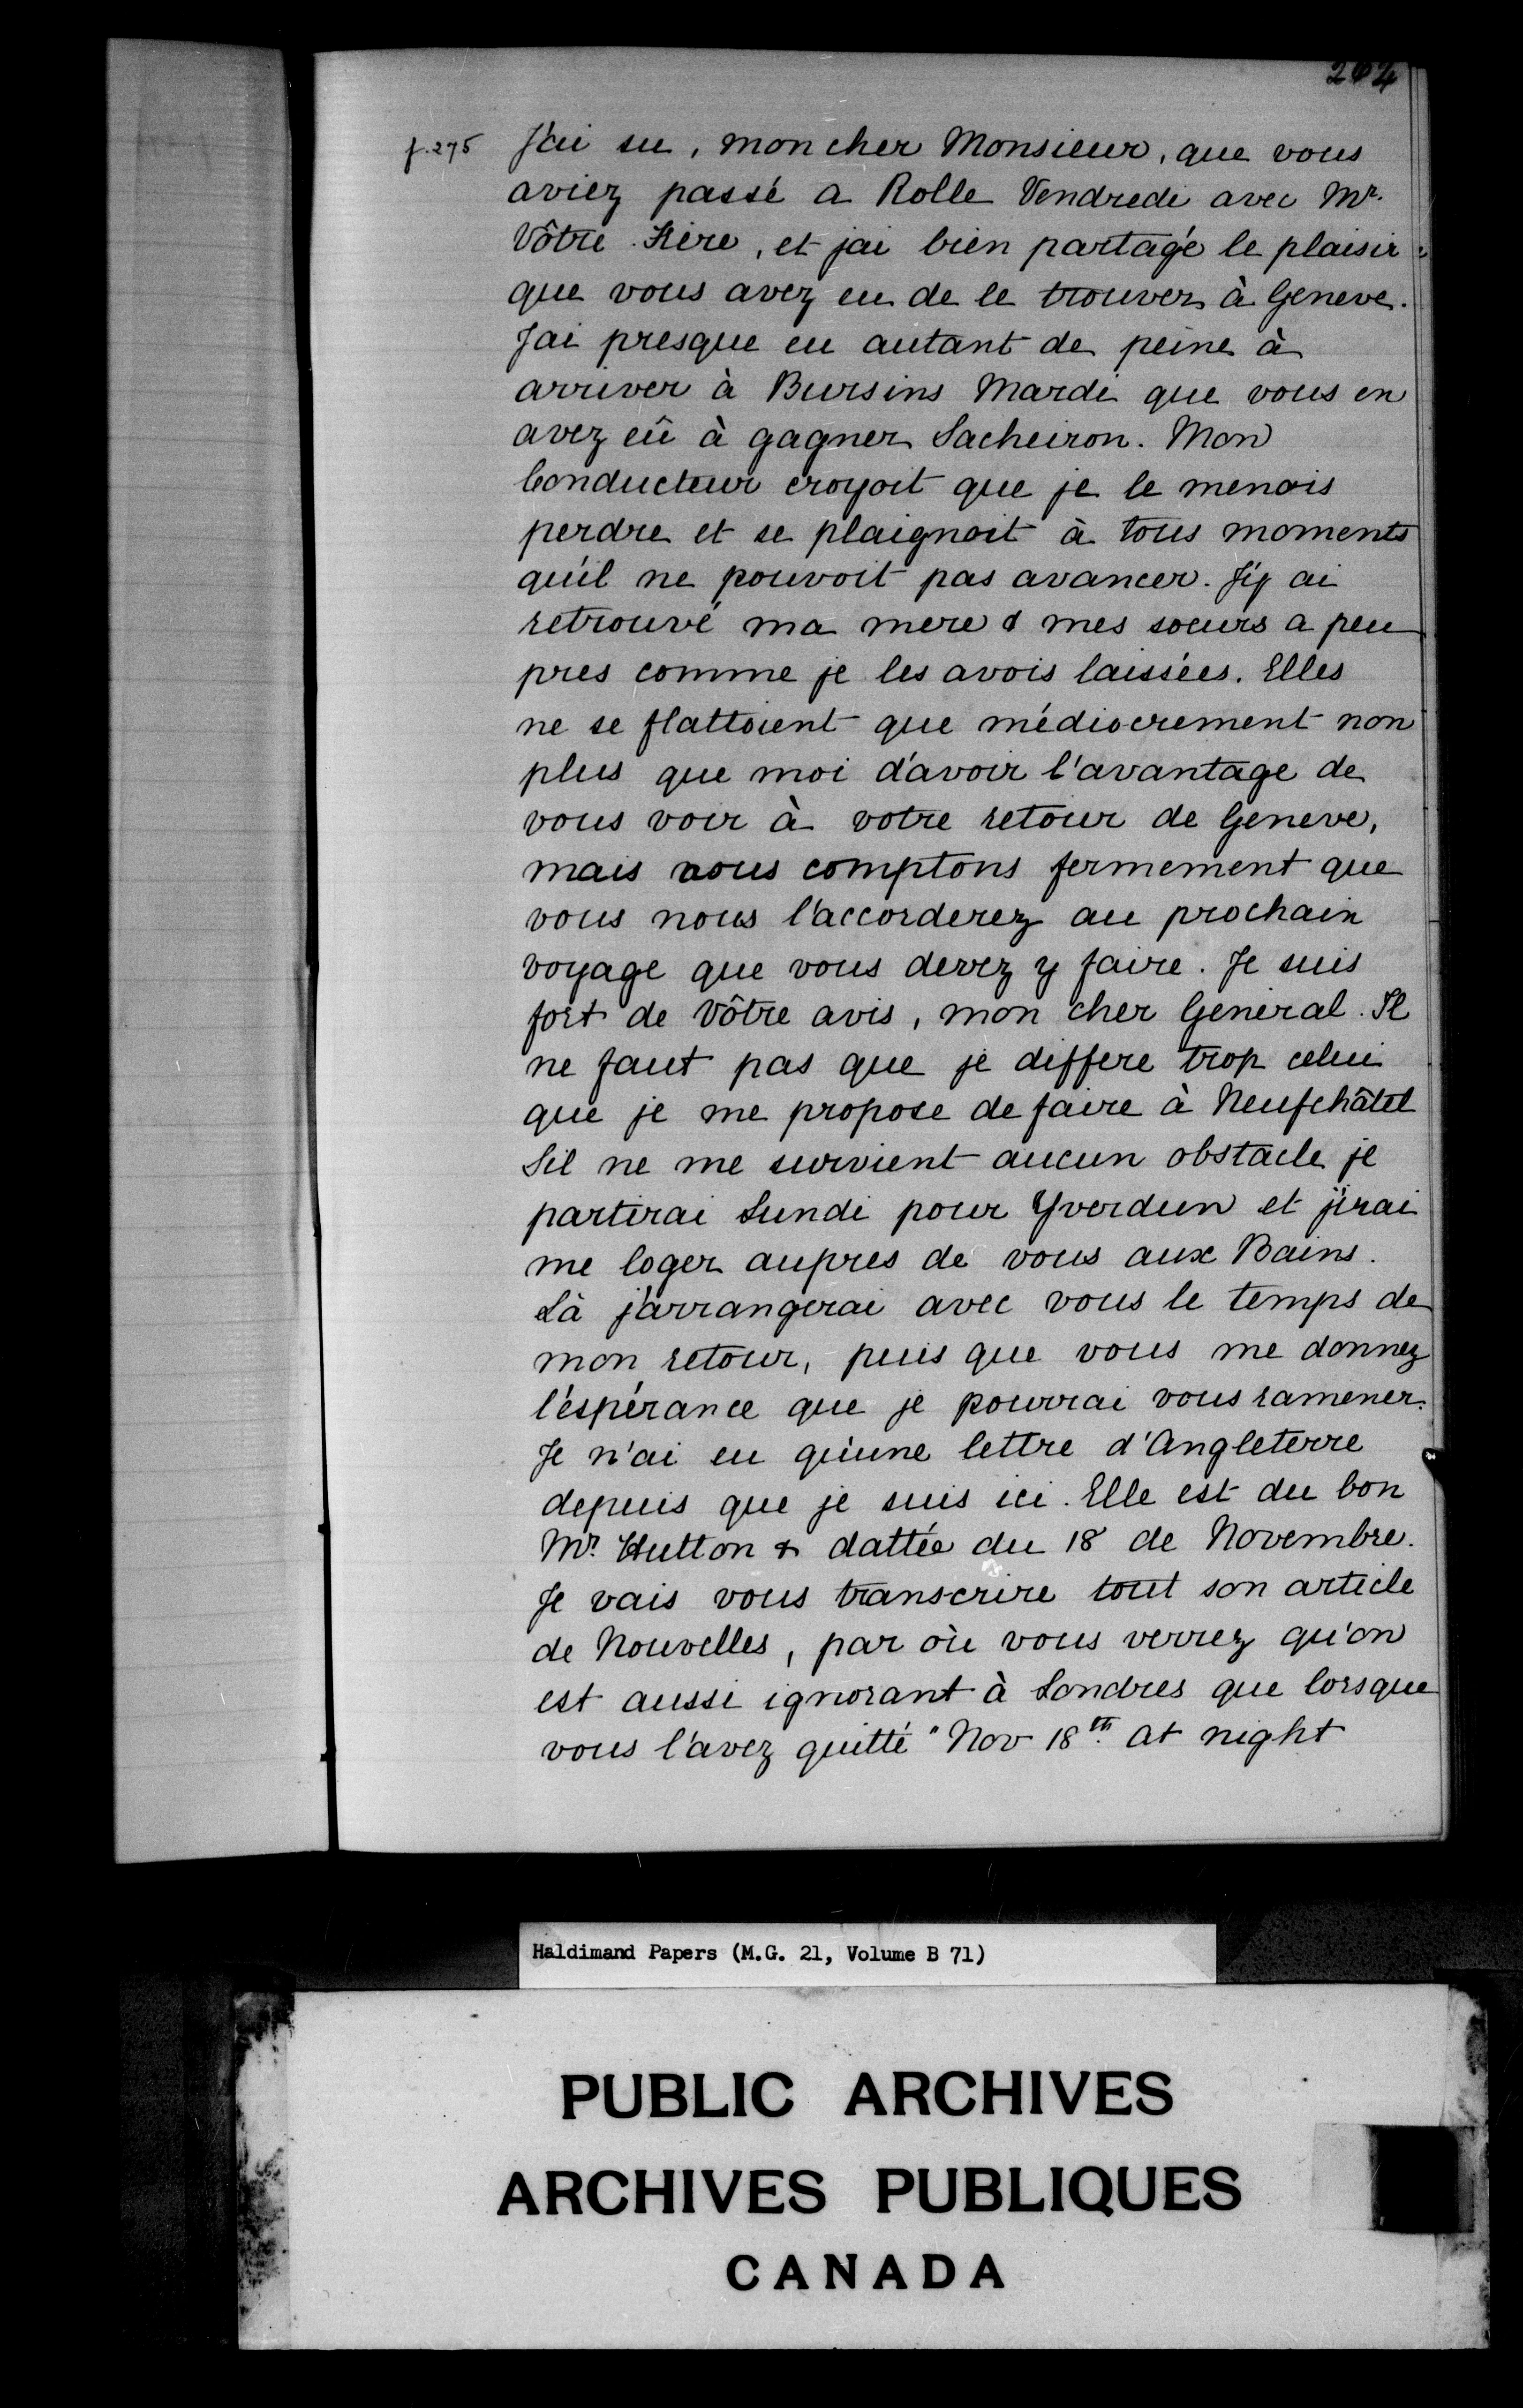 204
f.275 J'ai su, mon cher Monsieur, que vous
aviez passé a Rolle Vendredi avec Mr.
Vôtre frère, et jai bien partagé le plaisir
que vous avez eu de le trouver à Geneve.
Jai presque eu autant de peine à
arriver à Bursins Mardi que vous en
avez eû à gagner Sacheiron. Mon
Conducteur croyoit que je le menois
perdre et se plaignoit à tous moments
qu'il ne pouvoit pas avancer. J'y ai
retrouvé ma mere & mes soeurs a peu
pres comme je les avois laissées. Elles
ne se flattoient que médiocrement non
plus que moi d'avoir l'avantage de
vous voir à votre retour de Geneve,
mais nous comptons fermement que
vous nous l'accorderez au prochain
voyage que vous devez y faire. Je suis
fort de Vôtre avis, mon cher General. Il
ne faut pas que je differe trop celui
que je me propose de faire à Neufchâtel
Sil ne me survient aucun obstacle je
partirai Lundi pour Yverdun et j'irai
me loger aupres de vous aux Bains.
Là j'arrangerai avec vous le temps de
mon retour, puis que vous me donnez
l'éspérance que je pourrai vous ramener.
Je n'ai eu qu'une lettre d'Angleterre
depuis que je suis ici. Elle est du bon
Mr. Hutton & dattée du 18 de Novembre.
Je vais vous transcrire tout son article
de Nouvelles, par où vous verrez qu'on
est aussi ignorant à Londres que lorsque
vous l'avez quitté "Nov 18th. at night
Haldimand Papers (M.G. 21, Volume B 71)
PUBLIC ARCHIVES
ARCHIVES PUBLIQUES
CANADA